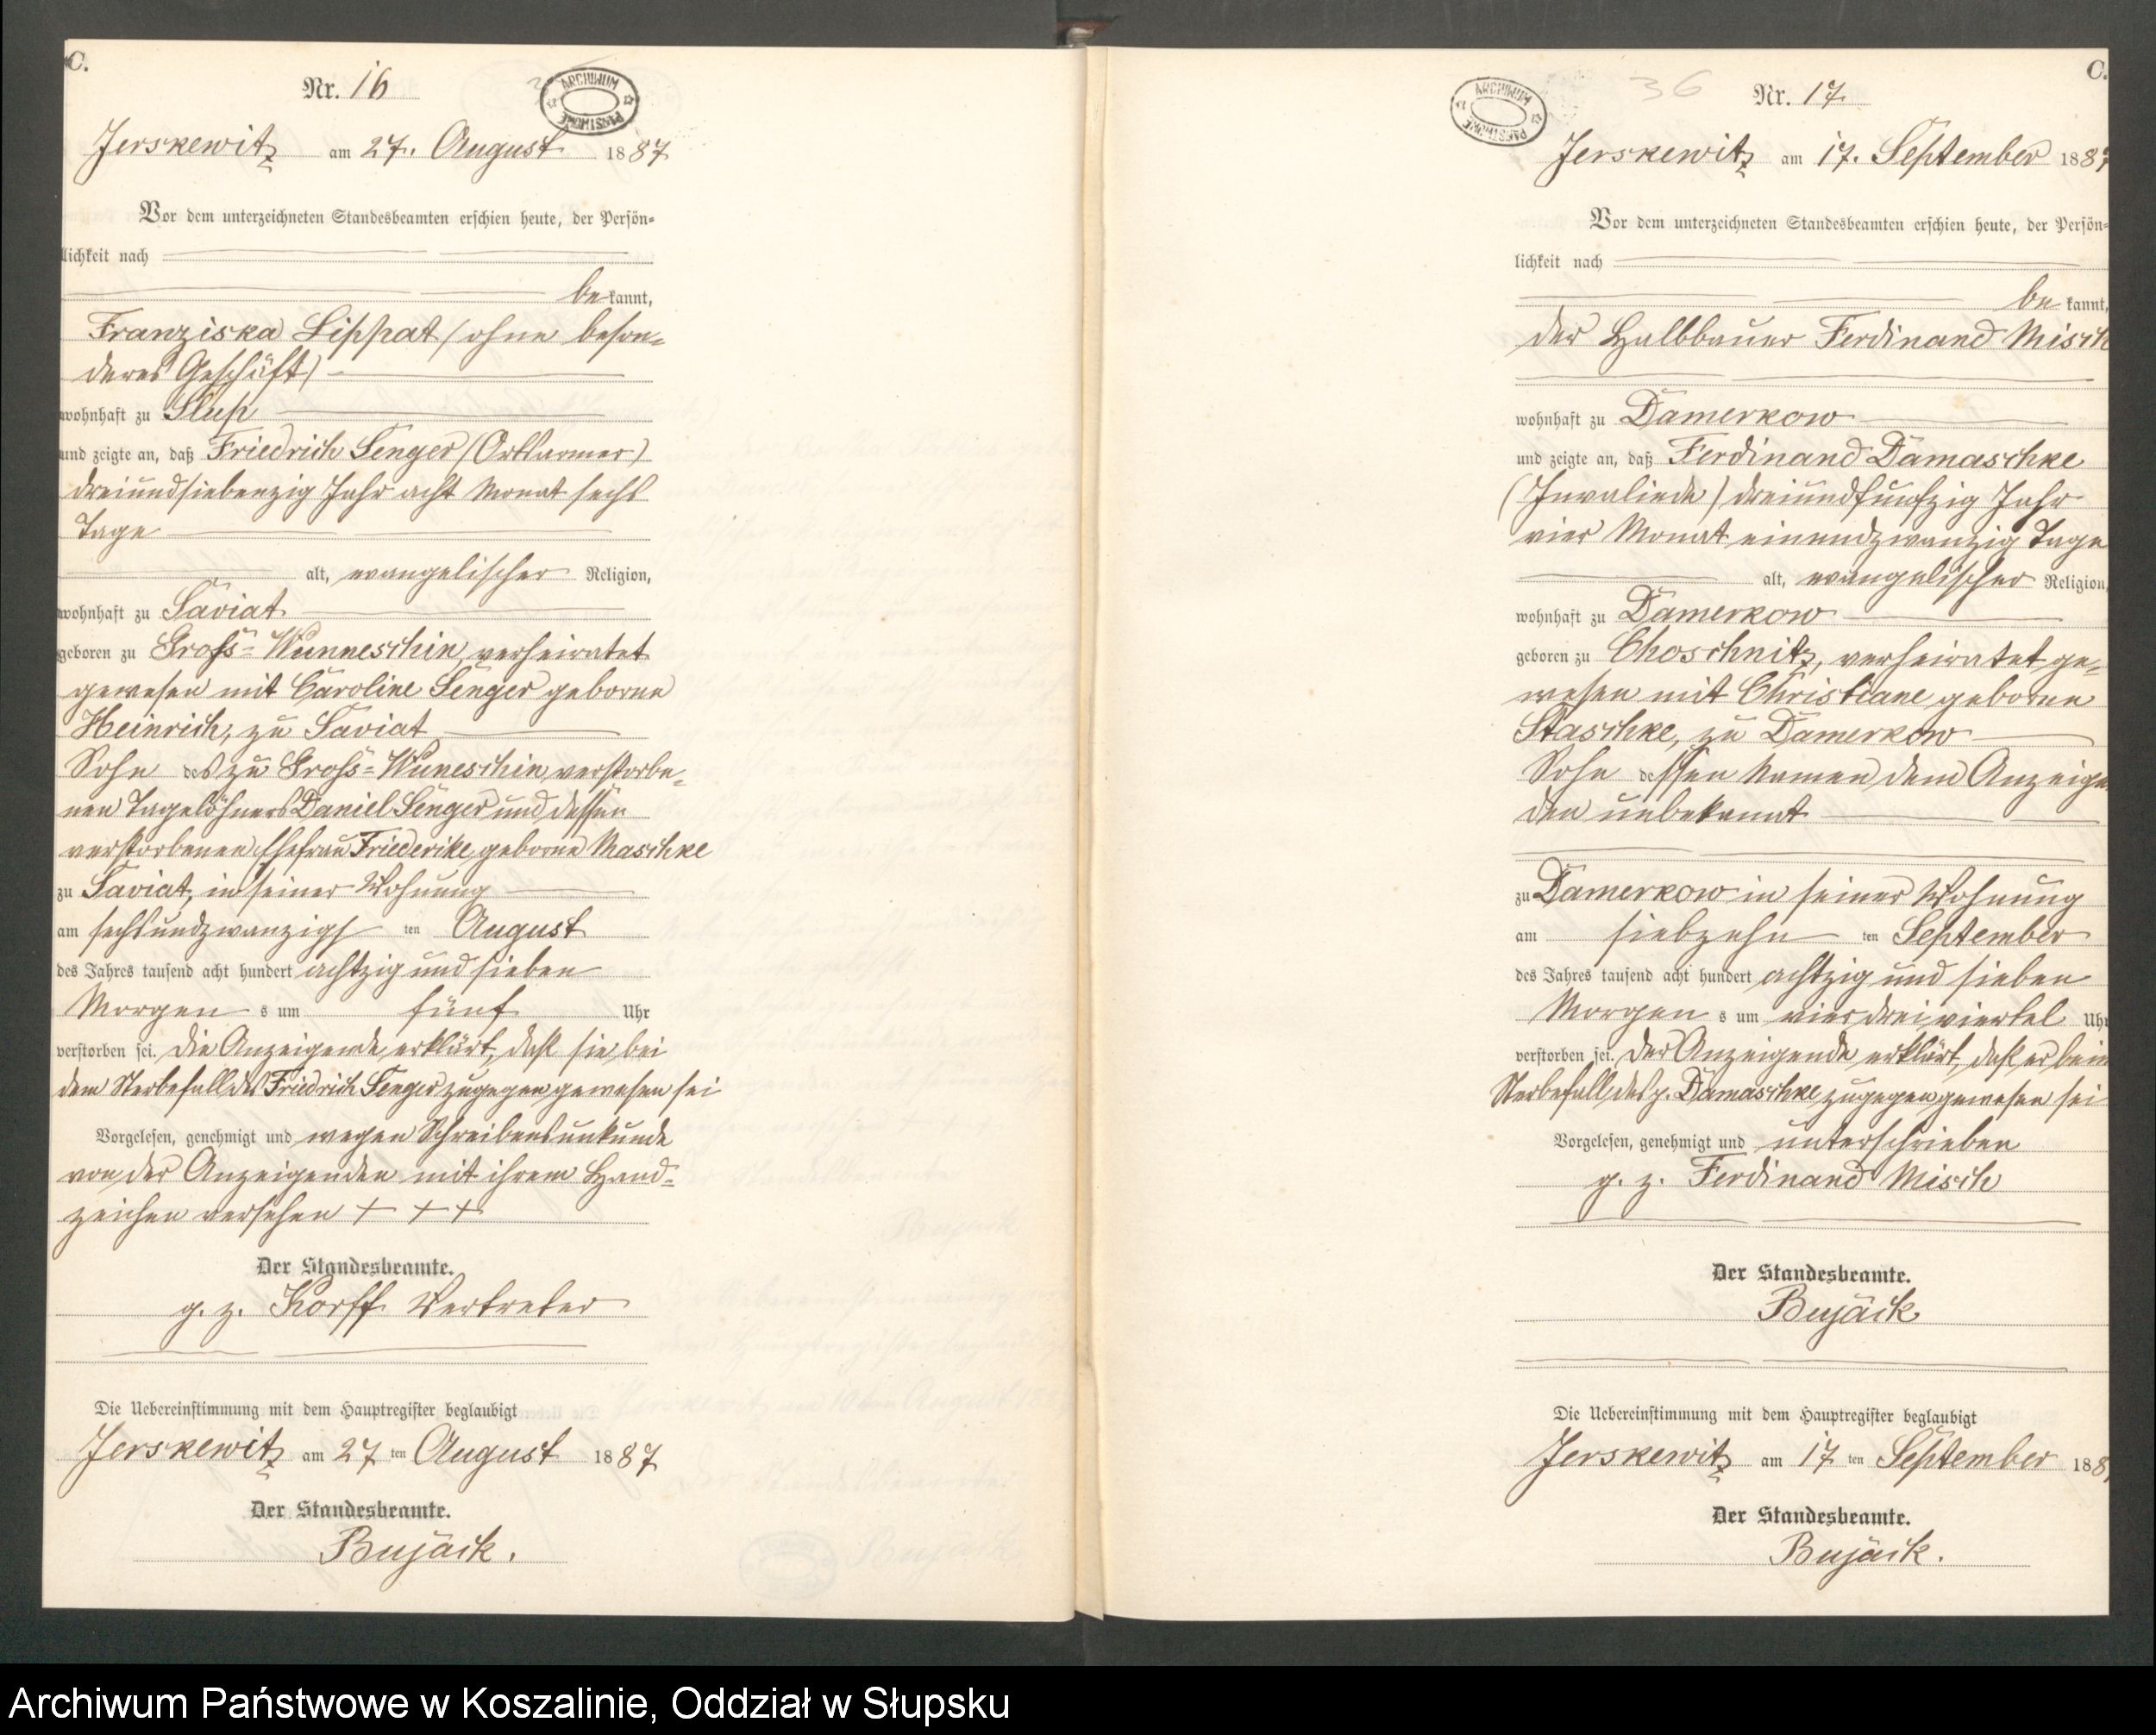 C.
Nr. 16
ARCHIWUM PAŃSTWOWE
Jerskewitz am 27. August 1887
Vor dem unterzeichneten Standesbeamten erschien heute, der Persön-
lichkeit nach
be kannt,
Franziska Lippat (ohne beson-
deres Geschäft)
wohnhaft zu
und zeigte an, daß Friedrich Senger (Ortsarmer)
dreiundsiebenzig Jahr acht Monat sechs
Tage
alt, evangelischer Religion,
wohnhaft zu Saviat
geboren zu Groß-Wunneschin, verheiratet
gewesen mit Caroline Senger geborne
Heinrich, zu Saviat
Sohn des zu Groß-Wuneschin verstorbe-
nen Tagelöhners Daniel Senger und dessen
verstorbenen Ehefrau Friederike geborne Maschke
zu Saviat, in seiner Wohnung
am sechsundzwanzigs ten August
des Jahres tausend acht hundert achtzig und sieben
Morgen s um fünf Uhr
verstorben sei. Die Anzeigende erklärt, daß sie bei
dem Sterbefall des Friedrich Senger zugegen gewesen sei
Vorgelesen, genehmigt und wegen Schreibensunkunde
von der Anzeigenden mit ihrem Hand-
zeichen versehen + + +
Der Standesbeamte.
g. z. Korff Vertreter
Die Uebereinstimmung mit dem Hauptregister beglaubigt
Jerskewitz am 27 ten August 1887
Der Standesbeamte.
Bujäck.
C.
36
Nr. 17
ARCHIWUM PAŃSTWOWE
Jerskewitz am 17. September 1887
Vor dem unterzeichneten Standesbeamten erschien heute, der Persön-
lichkeit nach
be kannt,
der Halbbauer Ferdinand Misch
wohnhaft zu Damerkow
und zeigte an, daß Ferdinand Damaschke
(Invaliede) dreiundfünfzig Jahr
vier Monat einundzwanzig Tage
alt, evangelischer Religion,
wohnhaft zu Damerkow
geboren zu Choschnitz, verheiratet ge-
wesen mit Christiane geborne
Staschke, zu Damerkow
Sohn dessen Namen dem Anzeigen
den unbekannt
zu Damerkow in seiner Wohnung
am siebzehn ten September
des Jahres tausend acht hundert achtzig und sieben
Morgen s um vier dreiviertel Uhr
verstorben sei. Der Anzeigende erklärt, daß er beim
Sterbefall des p. Damaschke zugegen gewesen sei
Vorgelesen, genehmigt und unterschrieben
g. z. Ferdinand Misch
Der Standesbeamte.
Bujäck
Die Uebereinstimmung mit dem Hauptregister beglaubigt
Jerskewitz am 17 ten September 188
Der Standesbeamte.
Bujäck.
Archiwum Państwowe w Koszalinie, Oddział w Słupsku